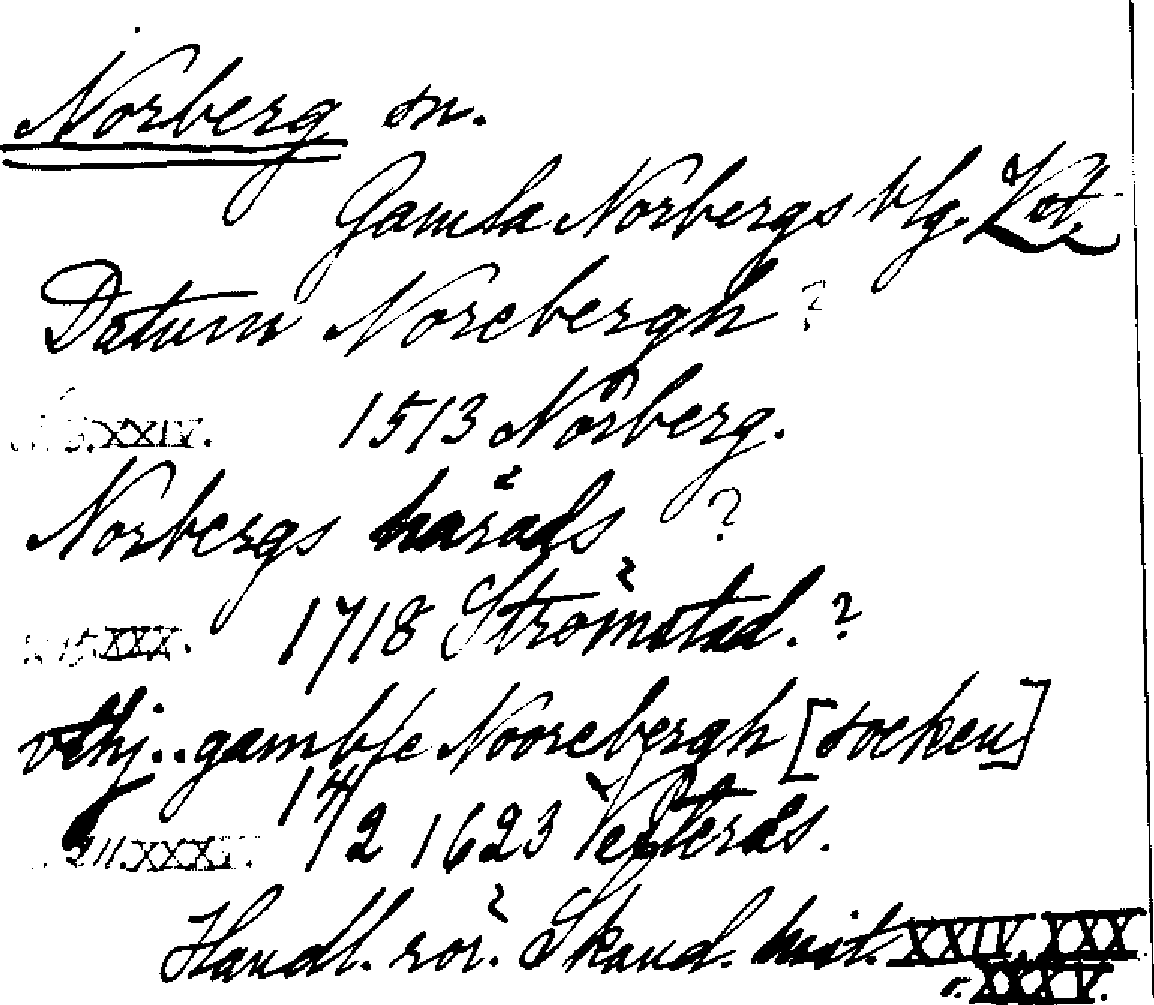 Norberg sn.
Gamla Norbergs blg. Vst.
Datum Norebergh ?
XXIV. 1513 Norberg.
Norbergs härads ?
XXX. 1718 Strömstad. ?
vthj.. gamble Noorebergh [socken]
XXXV. 14/2 1623 Vesterås.
Handl. rör. Skand. hist. XXIV, XXX
o. XXXV.